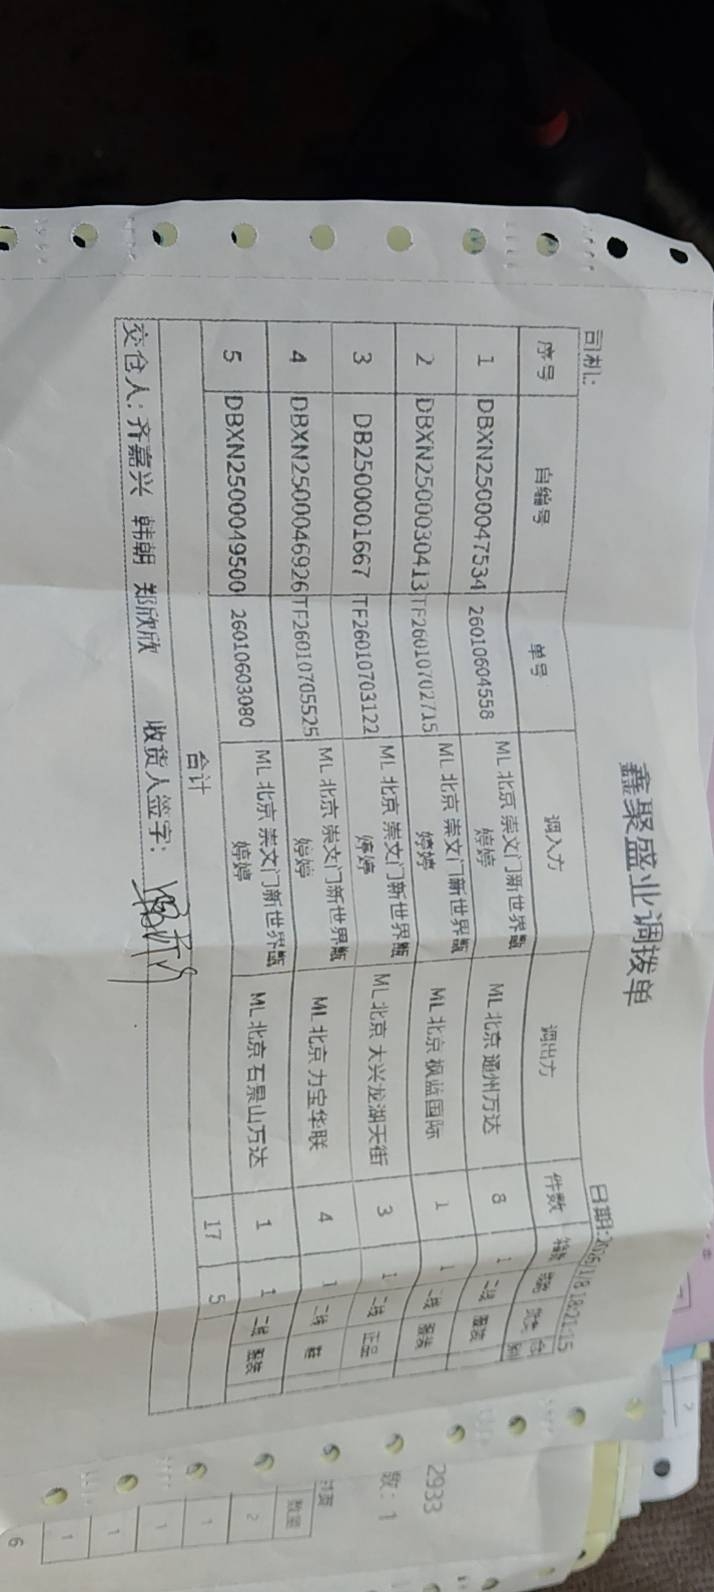 鑫聚盛业调拨单
司机: 日期:2026/1/8 18:21:15
序号 自编号 单号 调入方 调出方 件数 箱数
1 DBXN2500047534 26010604558 ML 北京 崇文门新世界甄婷婷 ML 北京 通州万达 8 1 二线 服装
2 DBXN2500030413 TF26010702715 ML 北京 崇文门新世界甄婷婷 ML 北京 枫蓝国际 1 1 二线 服装
3 DB2500001667 TF26010703122 ML 北京 崇文门新世界甄婷婷 ML 北京 大兴龙湖天街 3 1 二线 正品
4 DBXN2500046926 TF26010705525 ML 北京 崇文门新世界甄婷婷 ML 北京 力宝华联 4 1 二线 鞋
5 DBXN2500049500 26010603080 ML 北京 崇文门新世界甄婷婷 ML 北京 石景山万达 1 1 二线 服装
合计 17 5
交仓人: 齐嘉兴 韩朝 郑欣欣 收货人签字:
2933
数: 1
数量
2
1
1
1
1
6